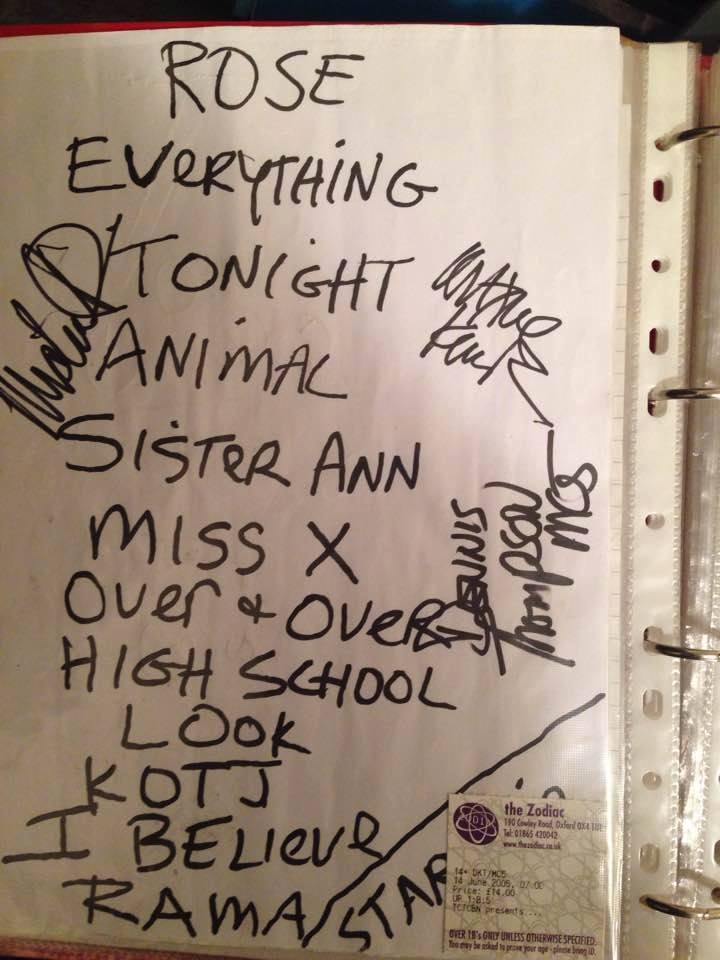 ROSE
EVERYTHING
TONIGHT
ANIMAL
SISTER ANN
MISS X
OVER & OVER
HIGH SCHOOL
LOOK
KOTJ
I BELIEVE
RAMA/STAR
DENNIS
Thompson
MC5
the Zodiac
190 Cowley Road, Oxford OX4 1UE
Tel: 01865 420042
www.thezodiac.co.uk
14+ DKT/MC5
14 June 2005, 07:00
Price: £14.00
UR 1:B:5
TCTCBN presents ...
OVER 18's ONLY UNLESS OTHERWISE SPECIFIED.
You may be asked to prove your age - please bring ID.